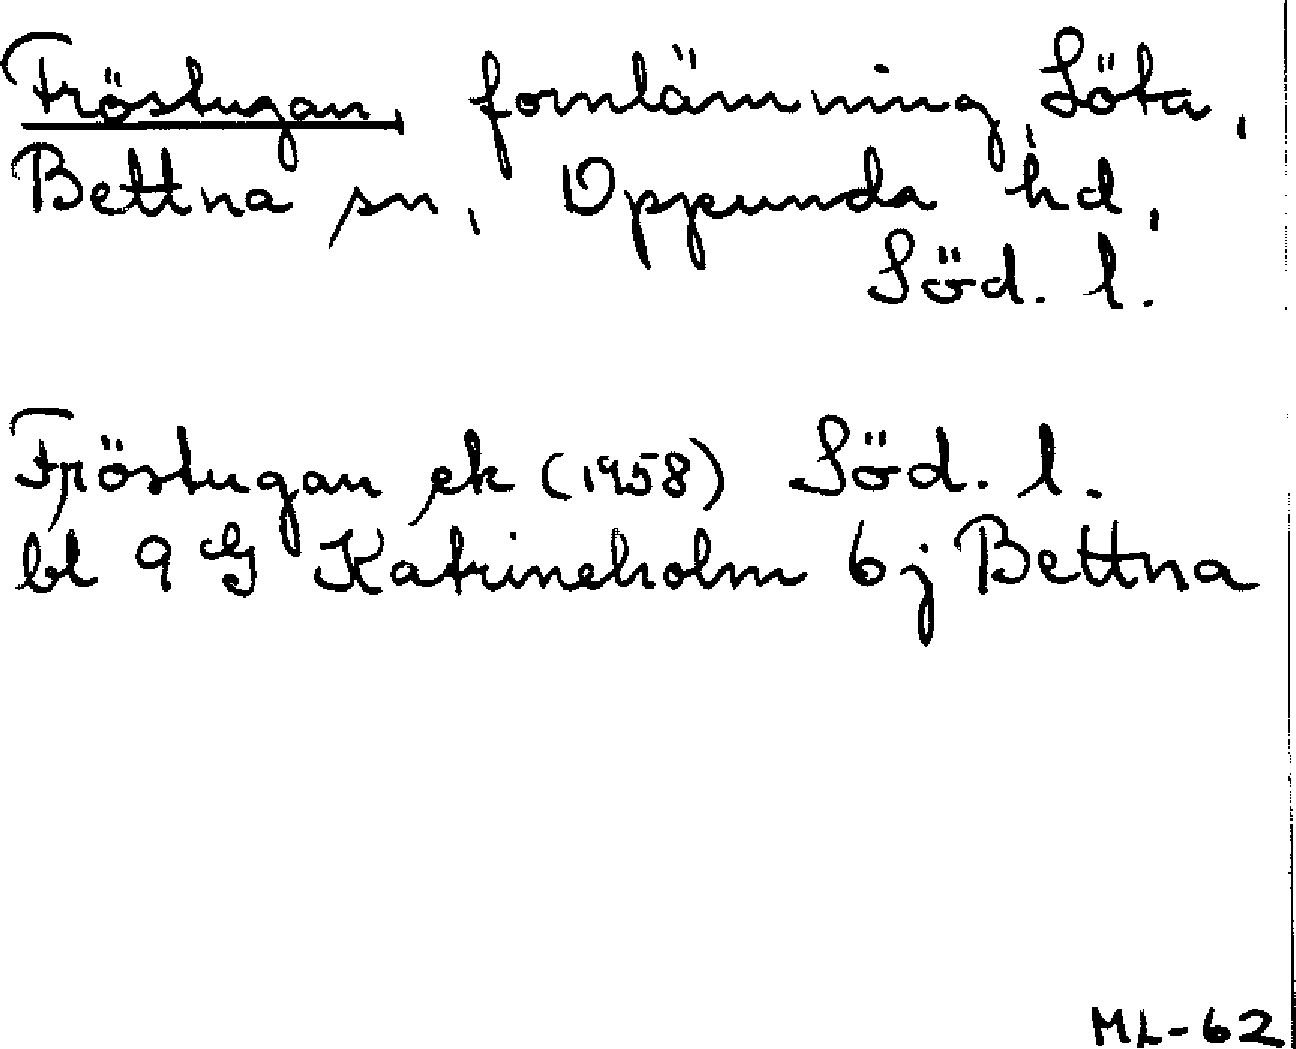 Fröstugan, fornlämning, Löta,
Bettna sn, Oppunda hd,
Söd. l.
Fröstugan ek (1958) Söd. l.
bl 9 G Katrineholm 6j Bettna
ML-62